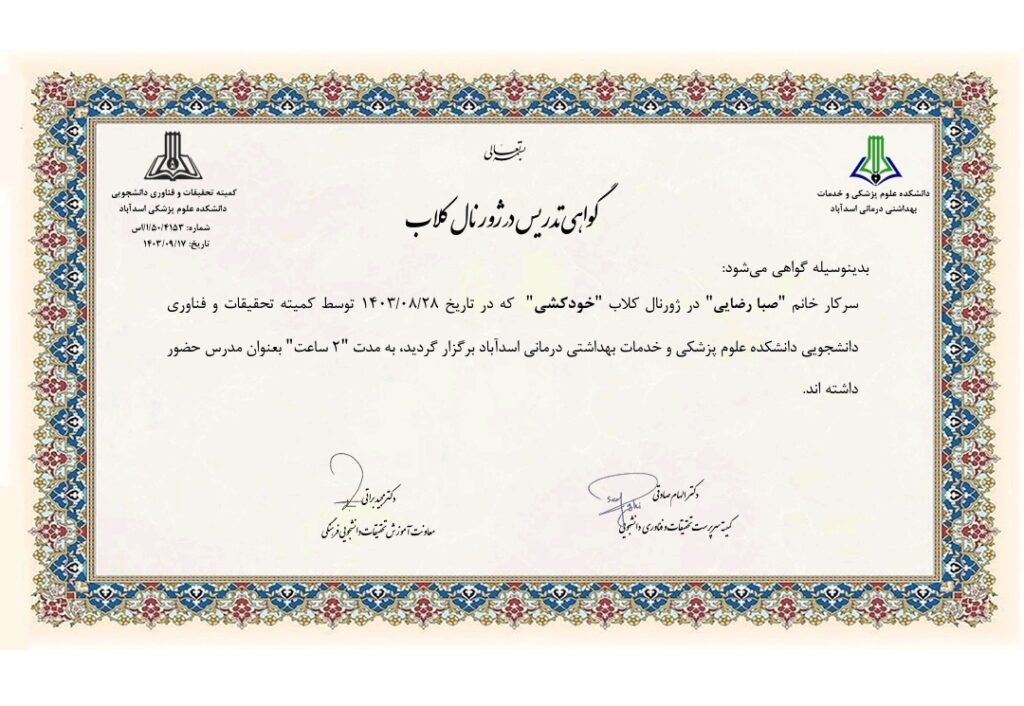 بسمه تعالی
دانشکده علوم پزشکی و خدمات
بهداشتی درمانی اسدآباد
کمیته تحقیقات و فناوری دانشجویی
دانشکده علوم پزشکی اسدآباد
شماره: ۱/۵۰/۴۱۵۳/اس
تاریخ: ۱۴۰۳/۰۹/۱۷
گواهی تدریس در ژورنال کلاب
بدینوسیله گواهی می‌شود:
سرکار خانم "صبا رضایی" در ژورنال کلاب "خودکشی" که در تاریخ ۱۴۰۳/۰۸/۲۸ توسط کمیته تحقیقات و فناوری
دانشجویی دانشکده علوم پزشکی و خدمات بهداشتی درمانی اسدآباد برگزار گردید، به مدت "۲ ساعت" بعنوان مدرس حضور
داشته اند.
دکتر الهام صادقی
کمیته سرپرست تحقیقات و فناوری دانشجویی
دکتر مجید براتی
معاونت آموزش تحقیقات دانشجویی فرهنگی